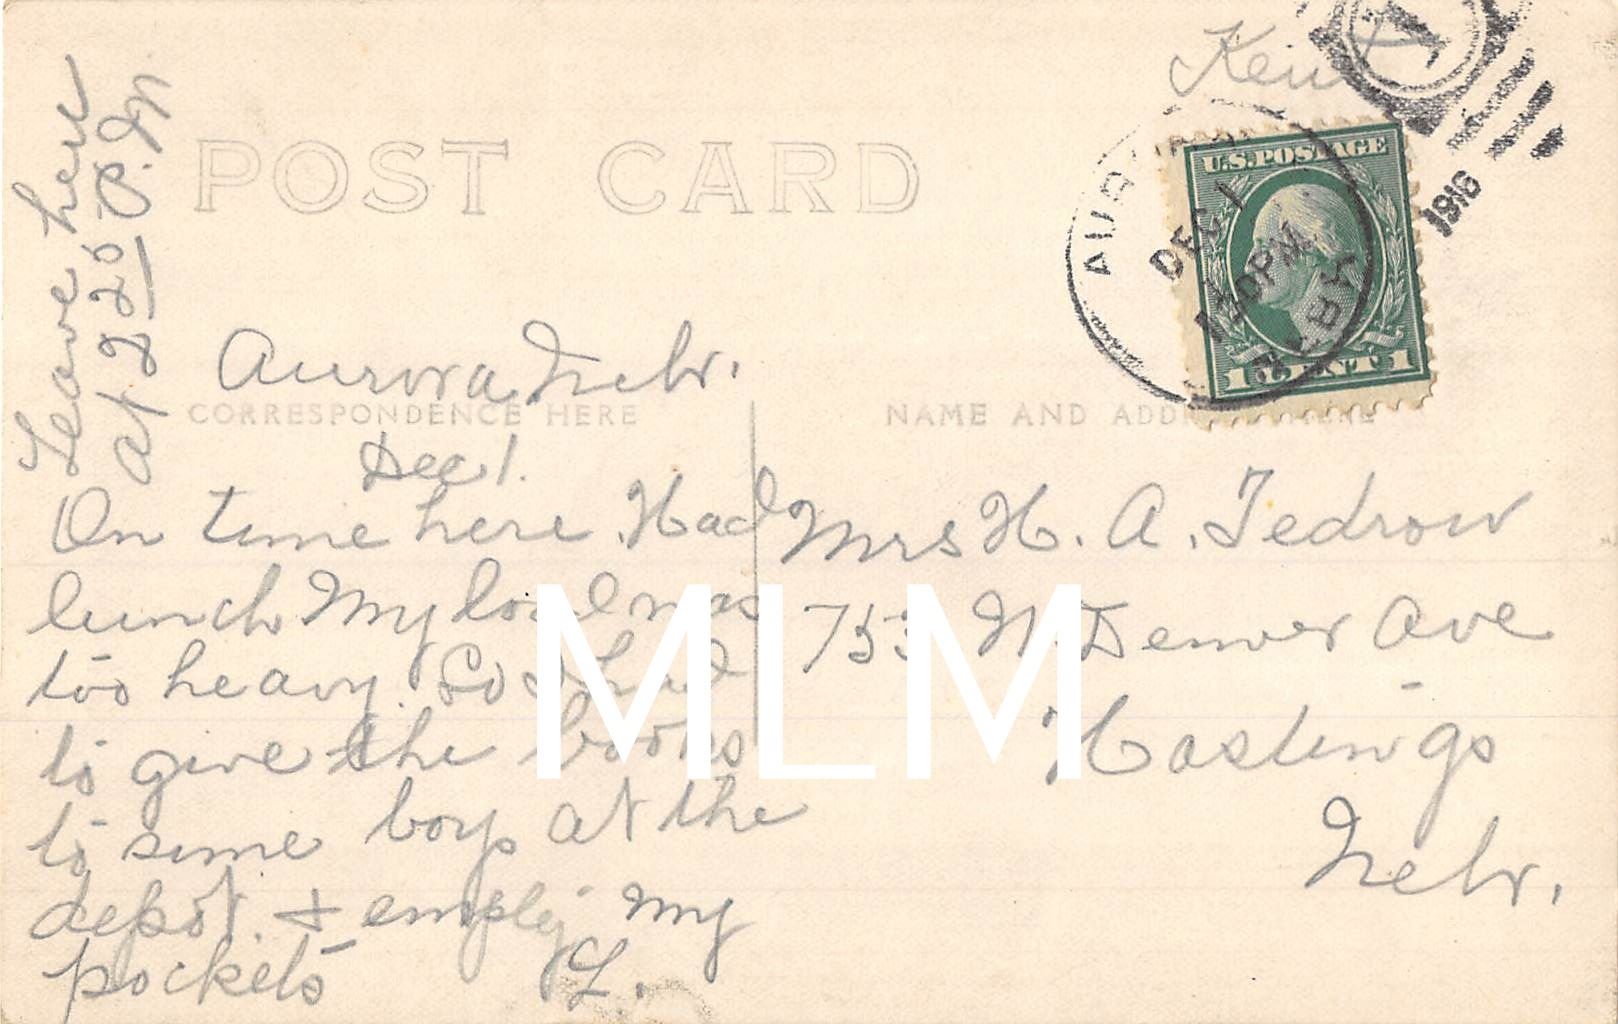 POST CARD
Leave here
at 2 25 P.M.
Aurora, Nebr.
CORRESPONDENCE HERE
Dec 1.
On time here. Had
lunch My load was
too heavy. So I had
to give the books
to some boys at the
depot. & empty my
pockets
L.
AURORA
DEC 1
PM
NEBR.
1916
1
U.S. POSTAGE
1 CENT 1
NAME AND ADDRESS HERE
Mrs H. A. Tedrow
753 N. Denver Ave
Hastings
Nebr.
MLM